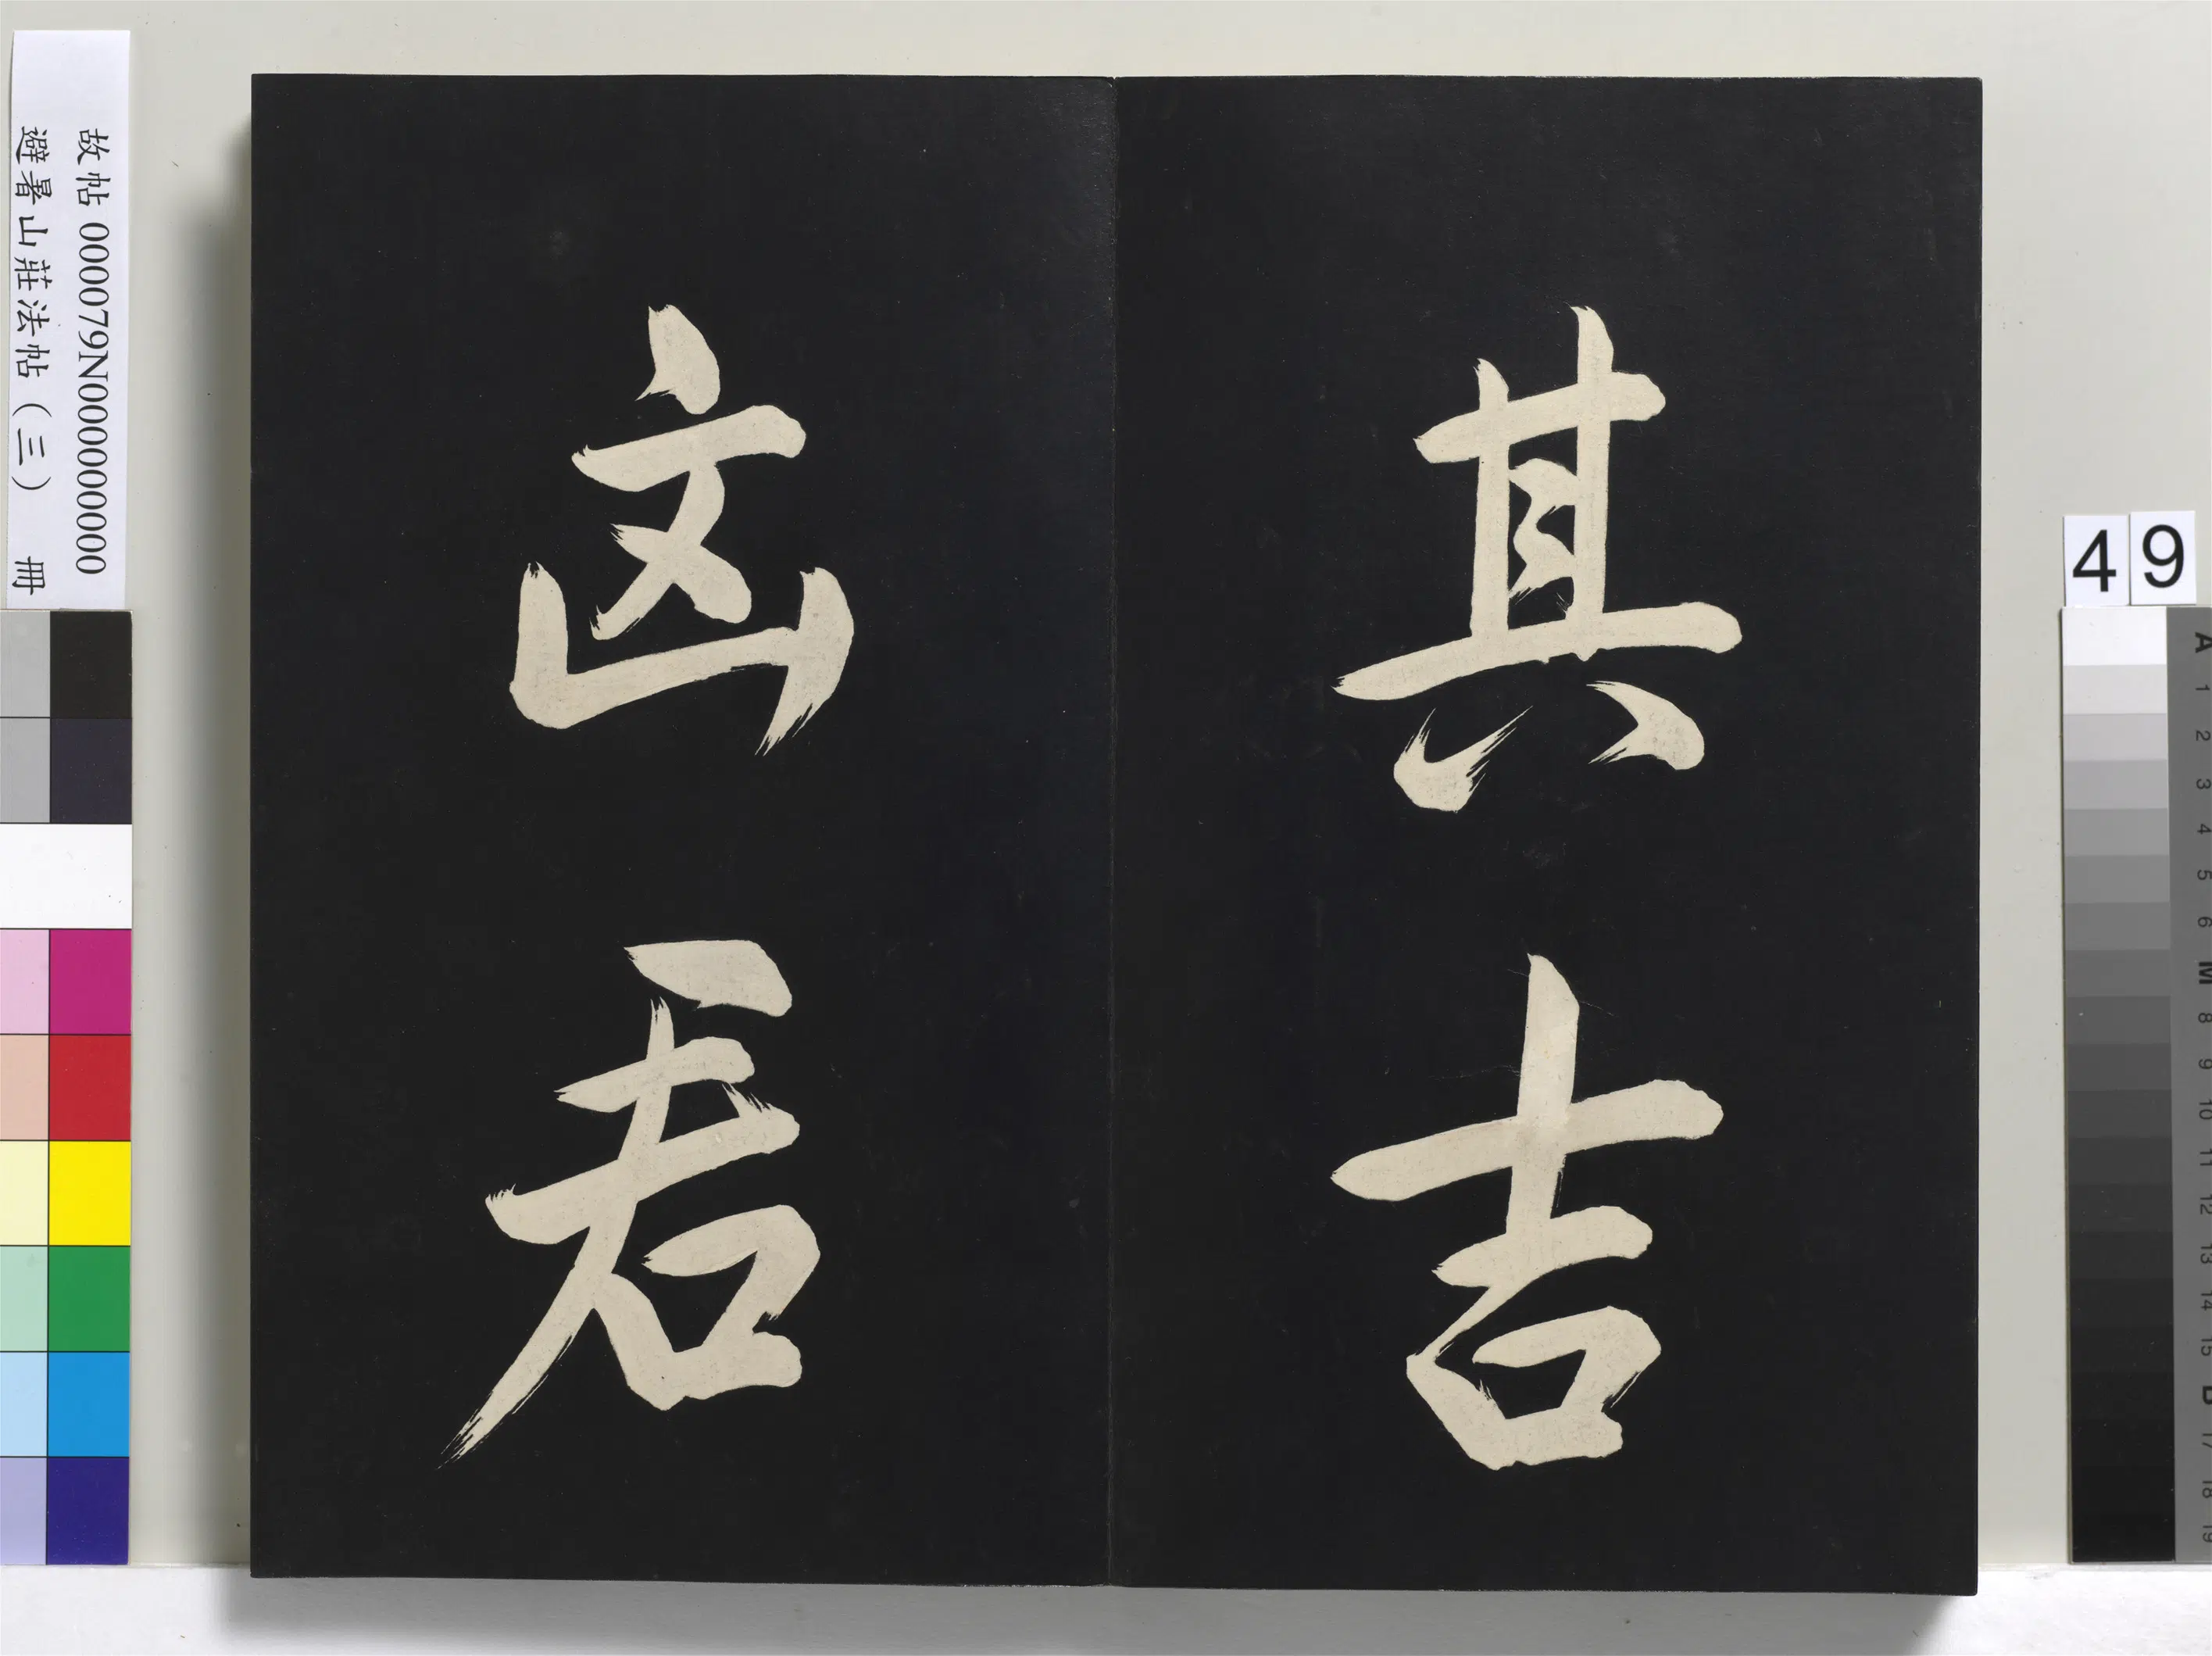 其吉
凶君
故帖 000079N000000000
避暑山莊法帖（三） 冊
49
A 1 2 3 4 5 6 M 8 9 10 11 12 13 14 15 B 17 18 19